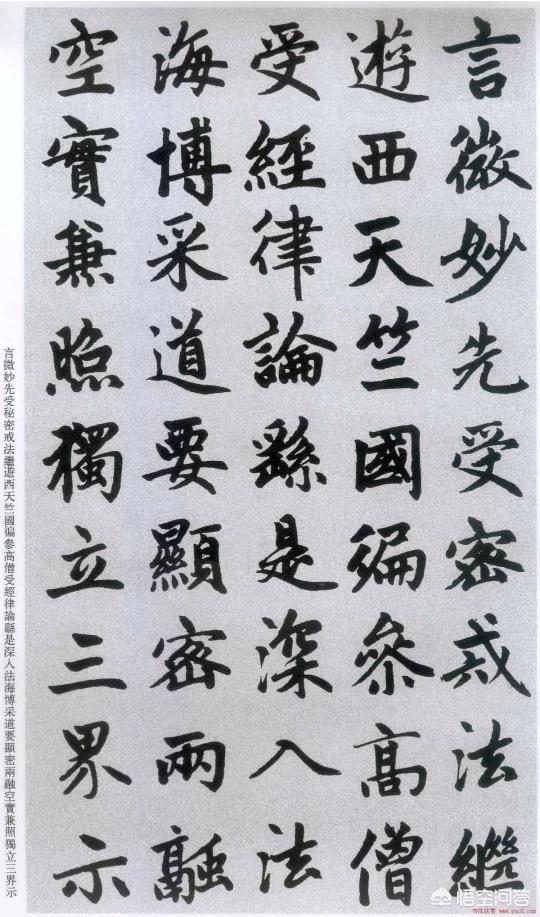 言微妙先受密戒法繼
遊西天竺國徧參高僧
受經律論繇是深入法
海博采道要顯密兩融
空實兼照獨立三界示
言微妙先受秘密戒法繼遊西天竺國徧參高僧受經律論繇是深入法海博采道要顯密兩融空實兼照獨立三界示
悟空问答
书法欣赏 www.yac8.com